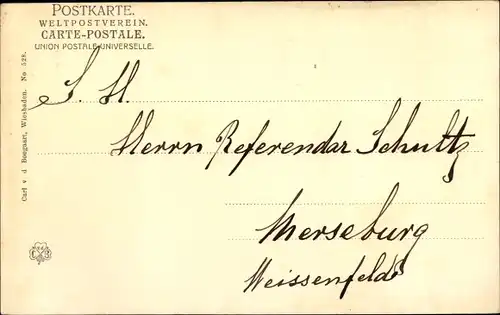 POSTKARTE.
WELTPOSTVEREIN.
CARTE-POSTALE.
UNION POSTALE UNIVERSELLE.
S. H.
Herrn Referendar Schultz
Merseburg
Weissenfels
Carl v. d. Boogaart, Wiesbaden. No 528.